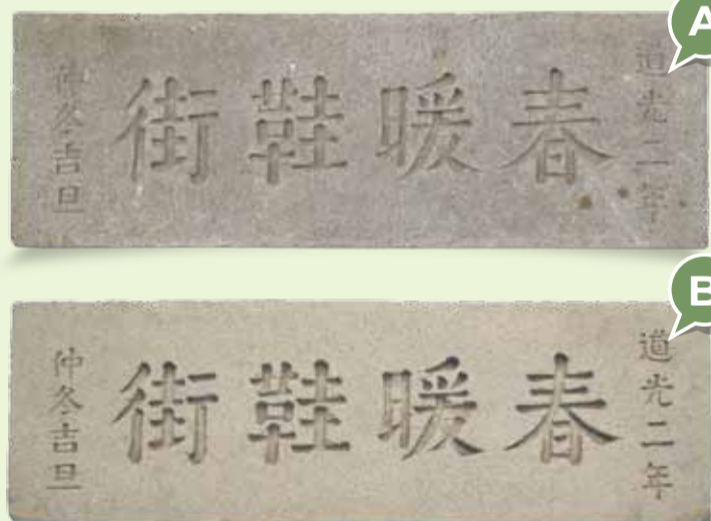 A
道光二年
春暖鞋街
仲冬吉旦
B
道光二年
春暖鞋街
仲冬吉旦